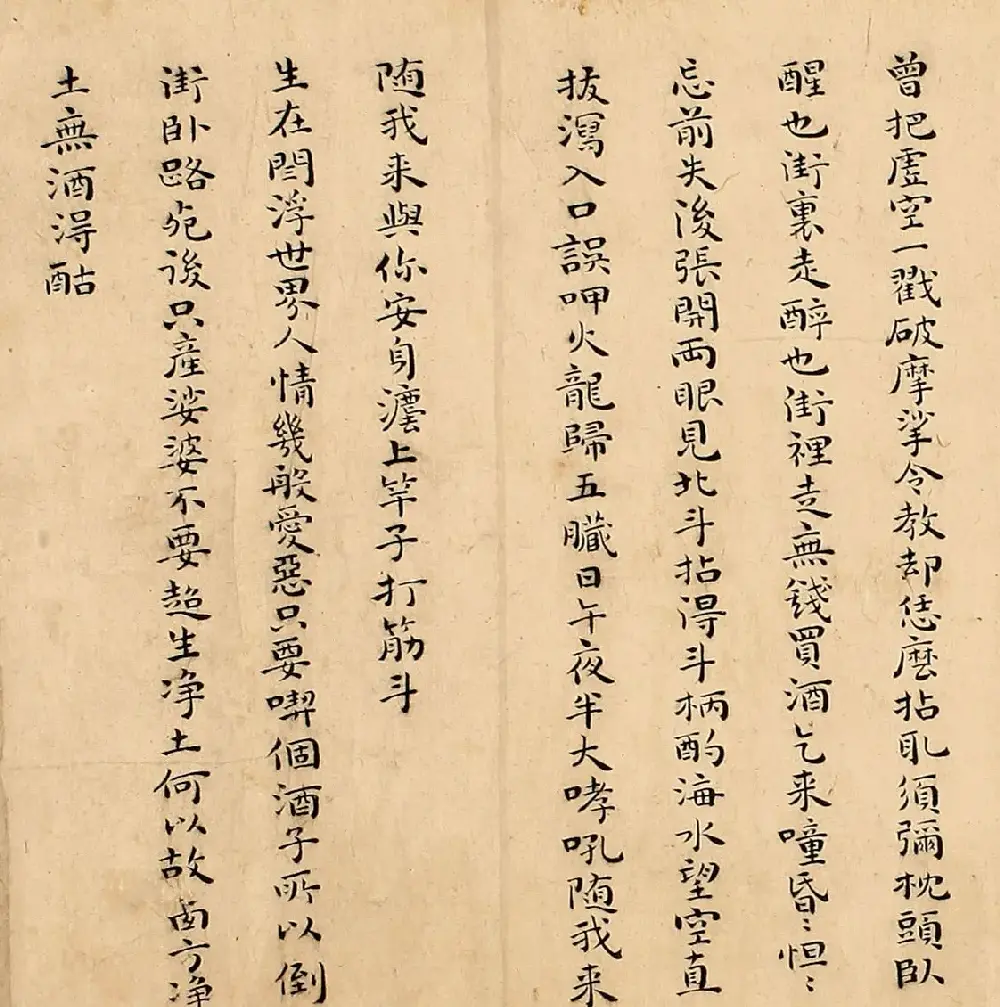 曾把虛空一戳破摩挲令教却恁麽拈㐌須彌枕頭臥
醒也街裏走醉也街裡走無錢買酒乞来噇昏〻怛〻
忘前失後張開両眼見北斗拈得斗柄酌海水望空直
拔瀉入口誤呷火龍歸五臟日午夜半大哮吼随我来
随我来與你安身瀍上竿子打筋斗
生在閻浮世界人情幾般愛惡只要喫個酒子所以倒
街卧路死後只產娑婆不要超生净土何以故西方净
土無酒得酤